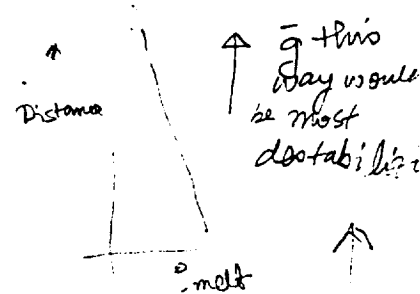 Distance
g̅ this
way would
be most
destabilizi
melt